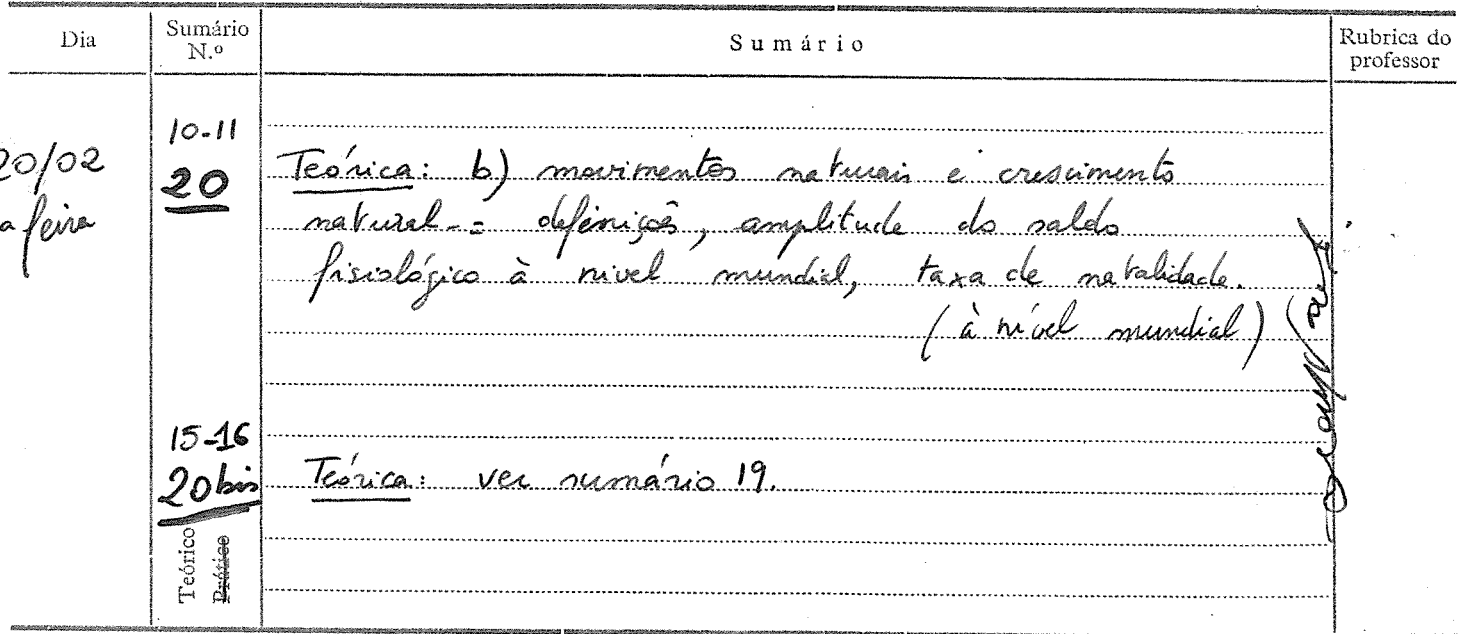 Dia
Sumário
N.º
Sumário
Rubrica do
professor
20/02
a feira
10-11
20
Teórica: b) movimentos naturais e crescimento
natural -= definições, amplitude do saldo
fisiológico à nivel mundial, taxa de natalidade.
(à nível mundial)
15-16
20 bis
Teórica: ver sumário 19.
Teórico
Prático